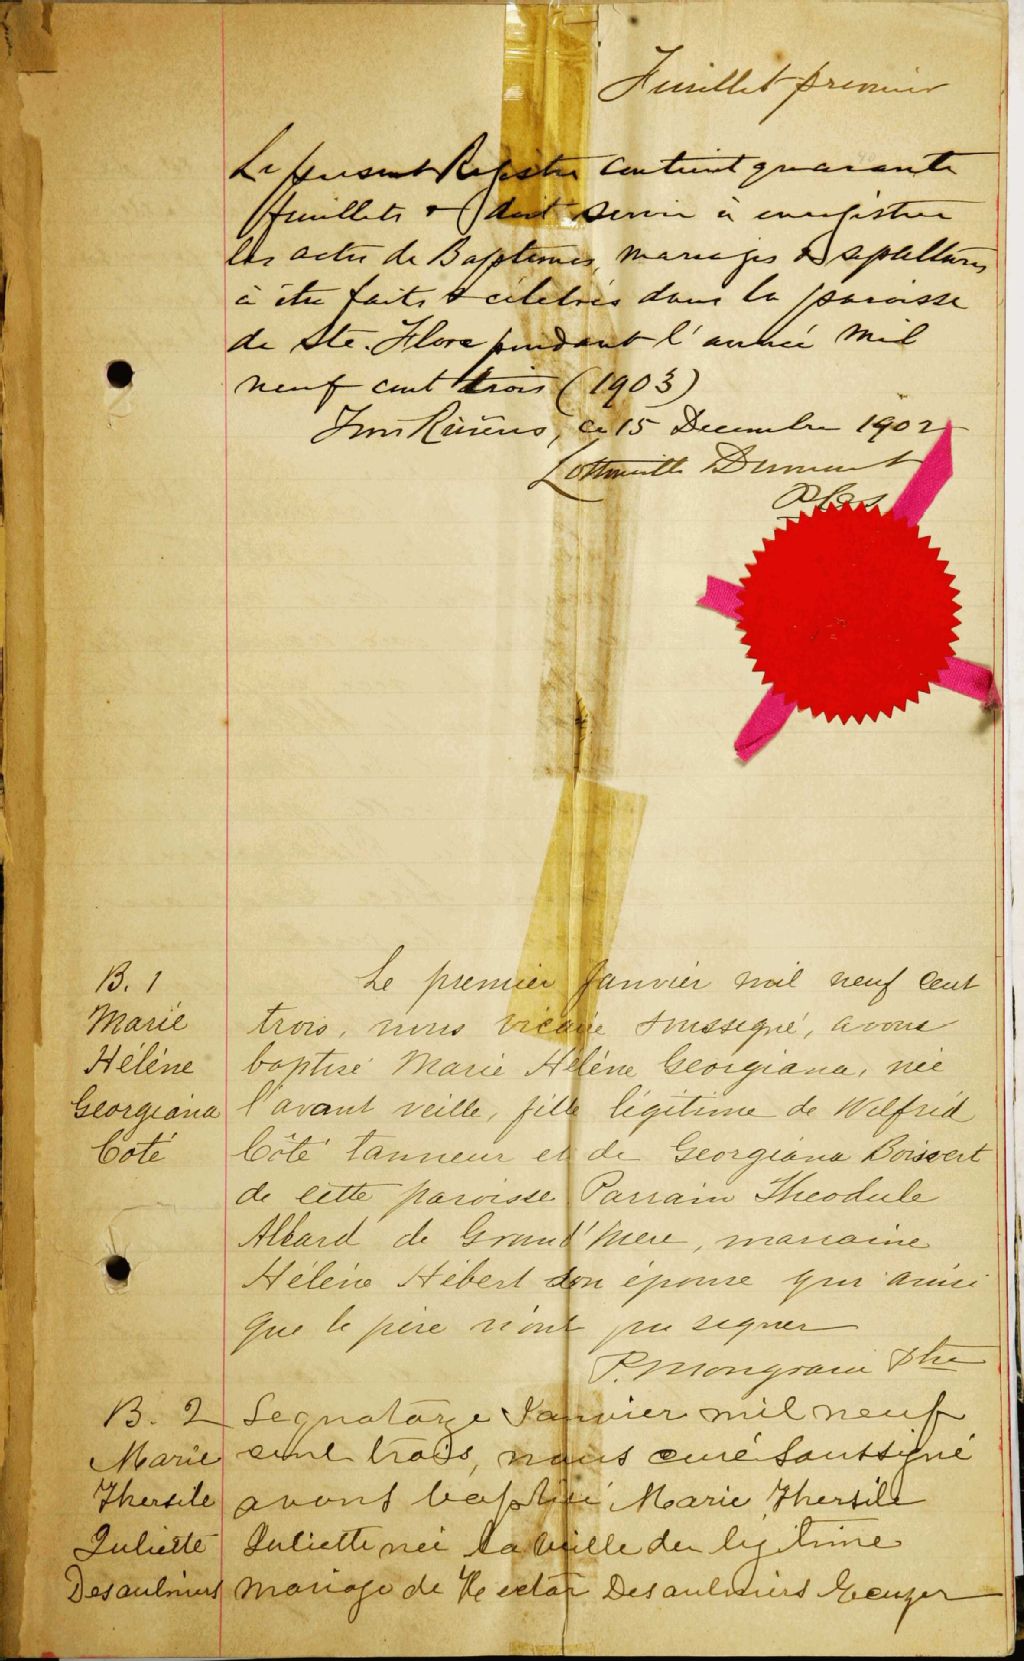 Feuillet premier
Le présent Registre contient quarante
feuillets & doit servir à enregistrer
les actes de Baptêmes, mariages & sépultures
à être faits & célébrés dans la paroisse
de Ste. Flore pendant l'année mil
neuf cent trois (1903)
Trois Rivières, ce 15 Decembre 1902
Dumont
B. 1
Marie
Hélène
Georgiana
Coté
Le premier Janvier mil neuf cent
trois, nous vicaire soussigné, avons
baptisé Marie Hélène Georgiana, née
l'avant veille, fille légitime de Wilfrid
Côté tanneur et de Georgiana Boisvert
de cette paroisse Parrain Theodule
Allard de Grand'Mere, marraine
Hélène Hébert son épouse qui ainsi
que le père n'ont pu signer
P. Mongrain Ptre
B. 2
Marie
Thersile
Juliette
Desaulniers
Le quatorze Janvier mil neuf
cent trois, nous curé soussigné
avons baptisé Marie Thersile
Juliette née la veille du légitime
mariage de Hector Desaulniers